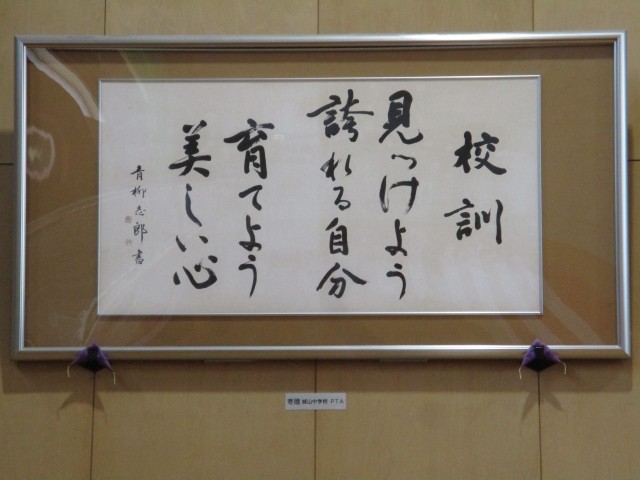 校訓
見つけよう
誇れる自分
育てよう
美しい心
青柳志郎書
寄贈 城山中学校 PTA